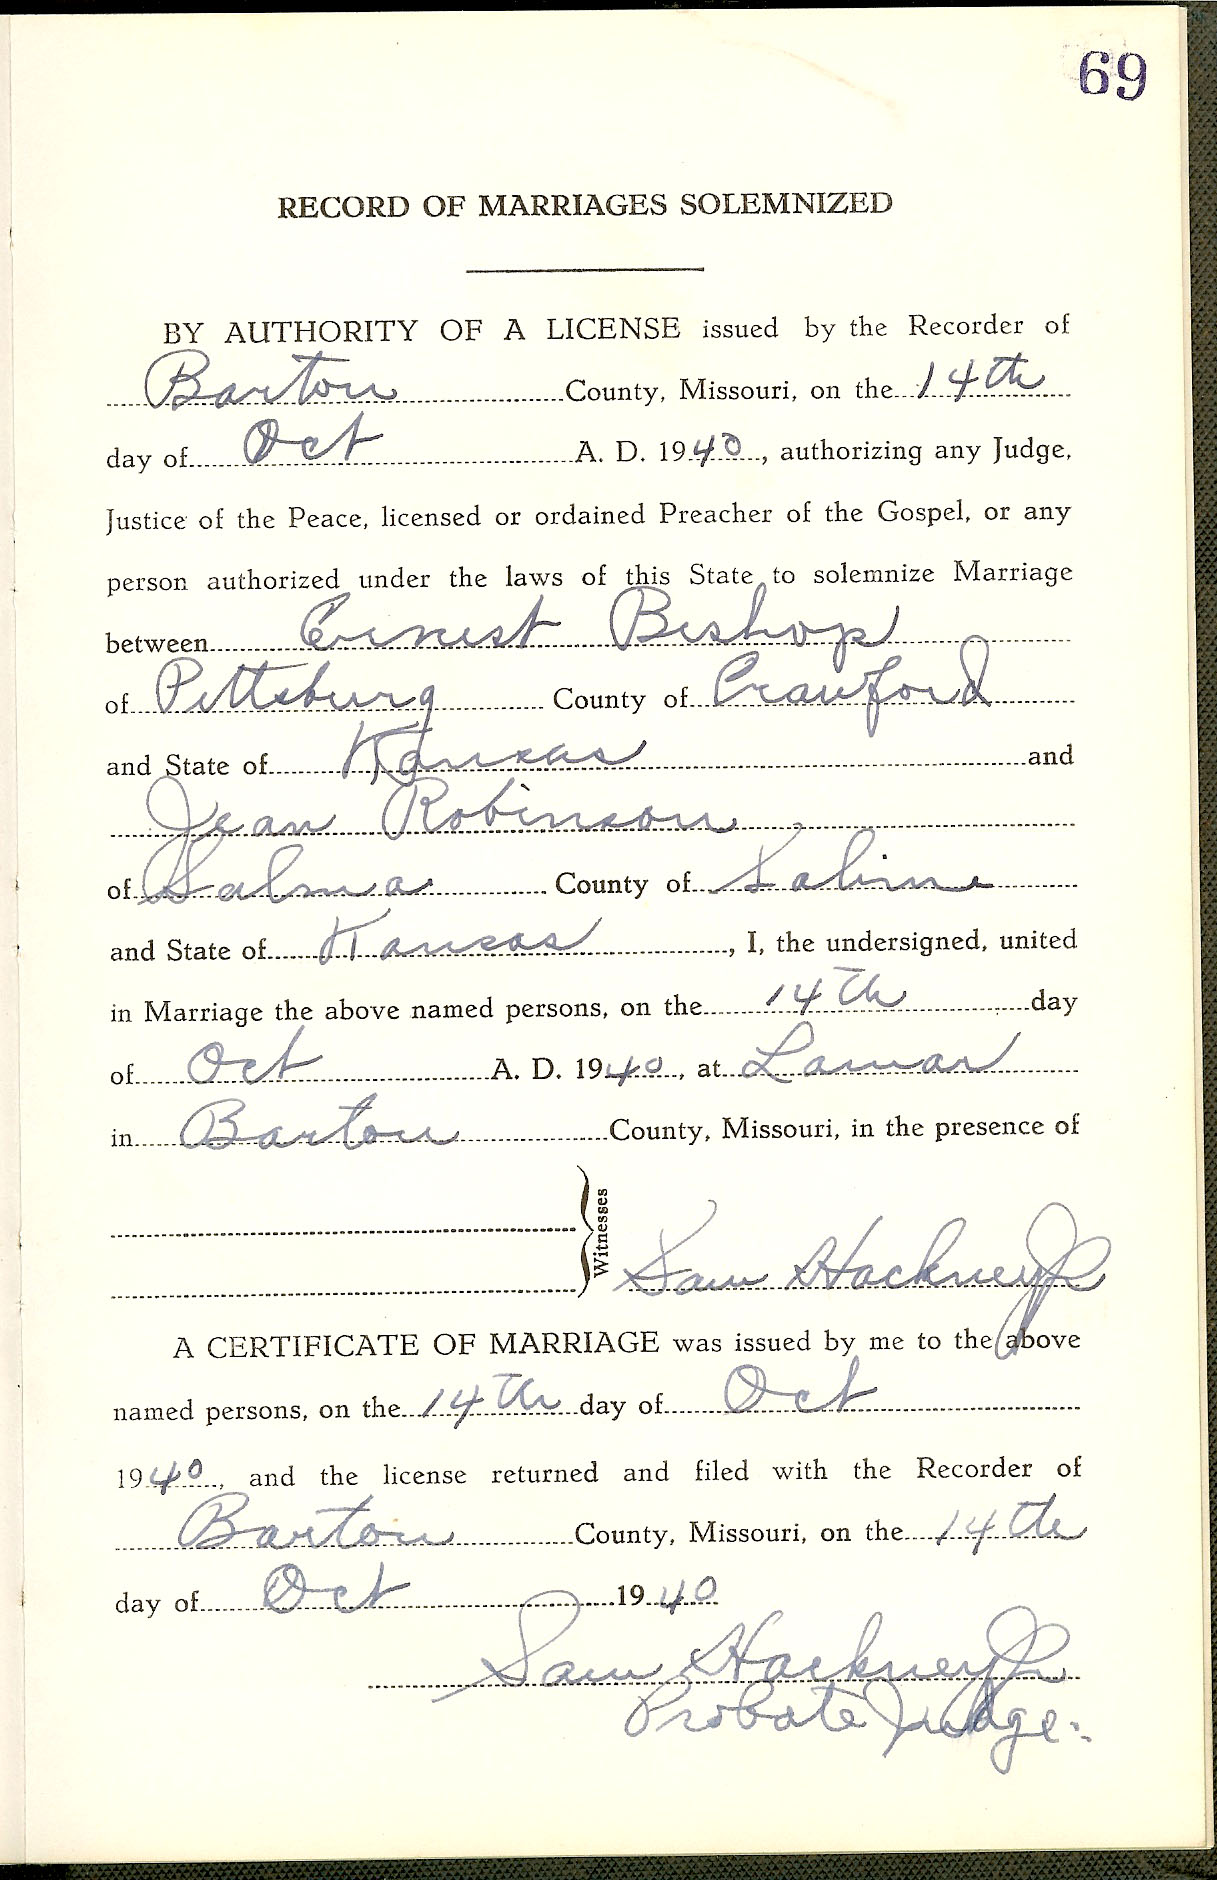 69
RECORD OF MARRIAGES SOLEMNIZED
BY AUTHORITY OF A LICENSE issued by the Recorder of
Barton County, Missouri, on the 14th
day of Oct A. D. 1940, authorizing any Judge,
Justice of the Peace, licensed or ordained Preacher of the Gospel, or any
person authorized under the laws of this State to solemnize Marriage
between Ernest Bishop
of Pittsburg County of Crawford
and State of Kansas and
Jean Robinson
of Salina County of Saline
and State of Kansas, I, the undersigned, united
in Marriage the above named persons, on the 14th day
of Oct A. D. 1940, at Lamar
in Barton County, Missouri, in the presence of
Witnesses
Sam Hackney Jr
A CERTIFICATE OF MARRIAGE was issued by me to the above
named persons, on the 14th day of Oct
1940, and the license returned and filed with the Recorder of
Barton County, Missouri, on the 14th
day of Oct 1940
Sam Hackney Jr
Probate Judge.